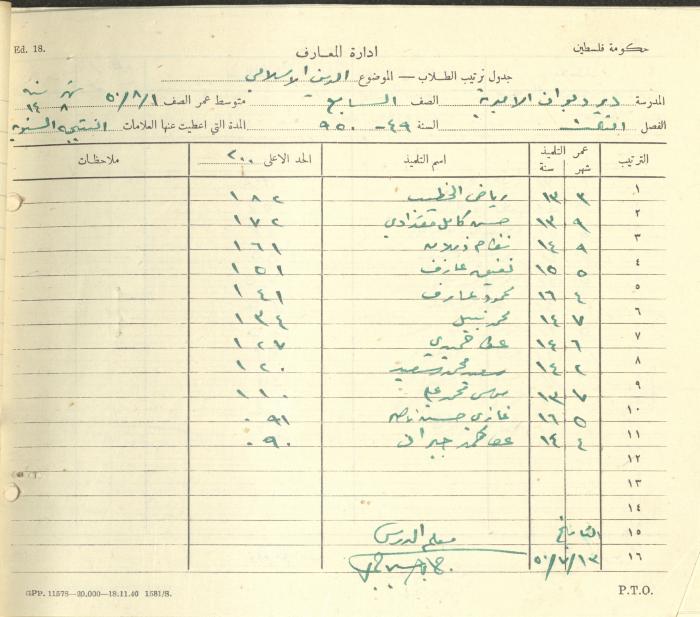 Ed. 18. حكومة فلسطين
ادارة المعارف
جدول ترتيب الطلاب — الموضوع الدين الاسلامي
المدرسة دير ديوان الاميرية الصف السابع متوسط عمر الصف ٥٠/٨/١ شهر ٨ سنة ١٤
الفصل الثالث السنة ٤٩ - ٩٥٠ المدة التي اعطيت عنها العلامات النتيجة السنوية
الترتيب عمر التلميذ شهر سنة اسم التلميذ الحد الاعلى ٢٠٠ ملاحظات
١ ٣ ١٣ رياض الخطيب ١٨٢
٢ ٩ ١٣ حسن كامل ١٧٢
٣ ٩ ١٤ نظام ١٦١
٤ ٥ ١٥ عارف ١٥١
٥ ٤ ١٦ محمود عارف ١٤١
٦ ٧ ١٤ محمد نبيل ١٣٤
٧ ٦ ١٤ عطا حميدي ١٢٧
٨ ٢ ١٤ سعيد ١٢٠
٩ ٧ ١٣ موسى محمد علي ١١٠
١٠ ٥ ١٦ غازي حسين ٠٩١
١١ ٤ ١٤ جبران ٠٩٠
١٢
١٣
١٤
١٥ التاريخ معلم الدرس
١٦ ٥٠/٧/١٣
GPP. 11578—20,000—18.11.40 1581/S. P.T.O.